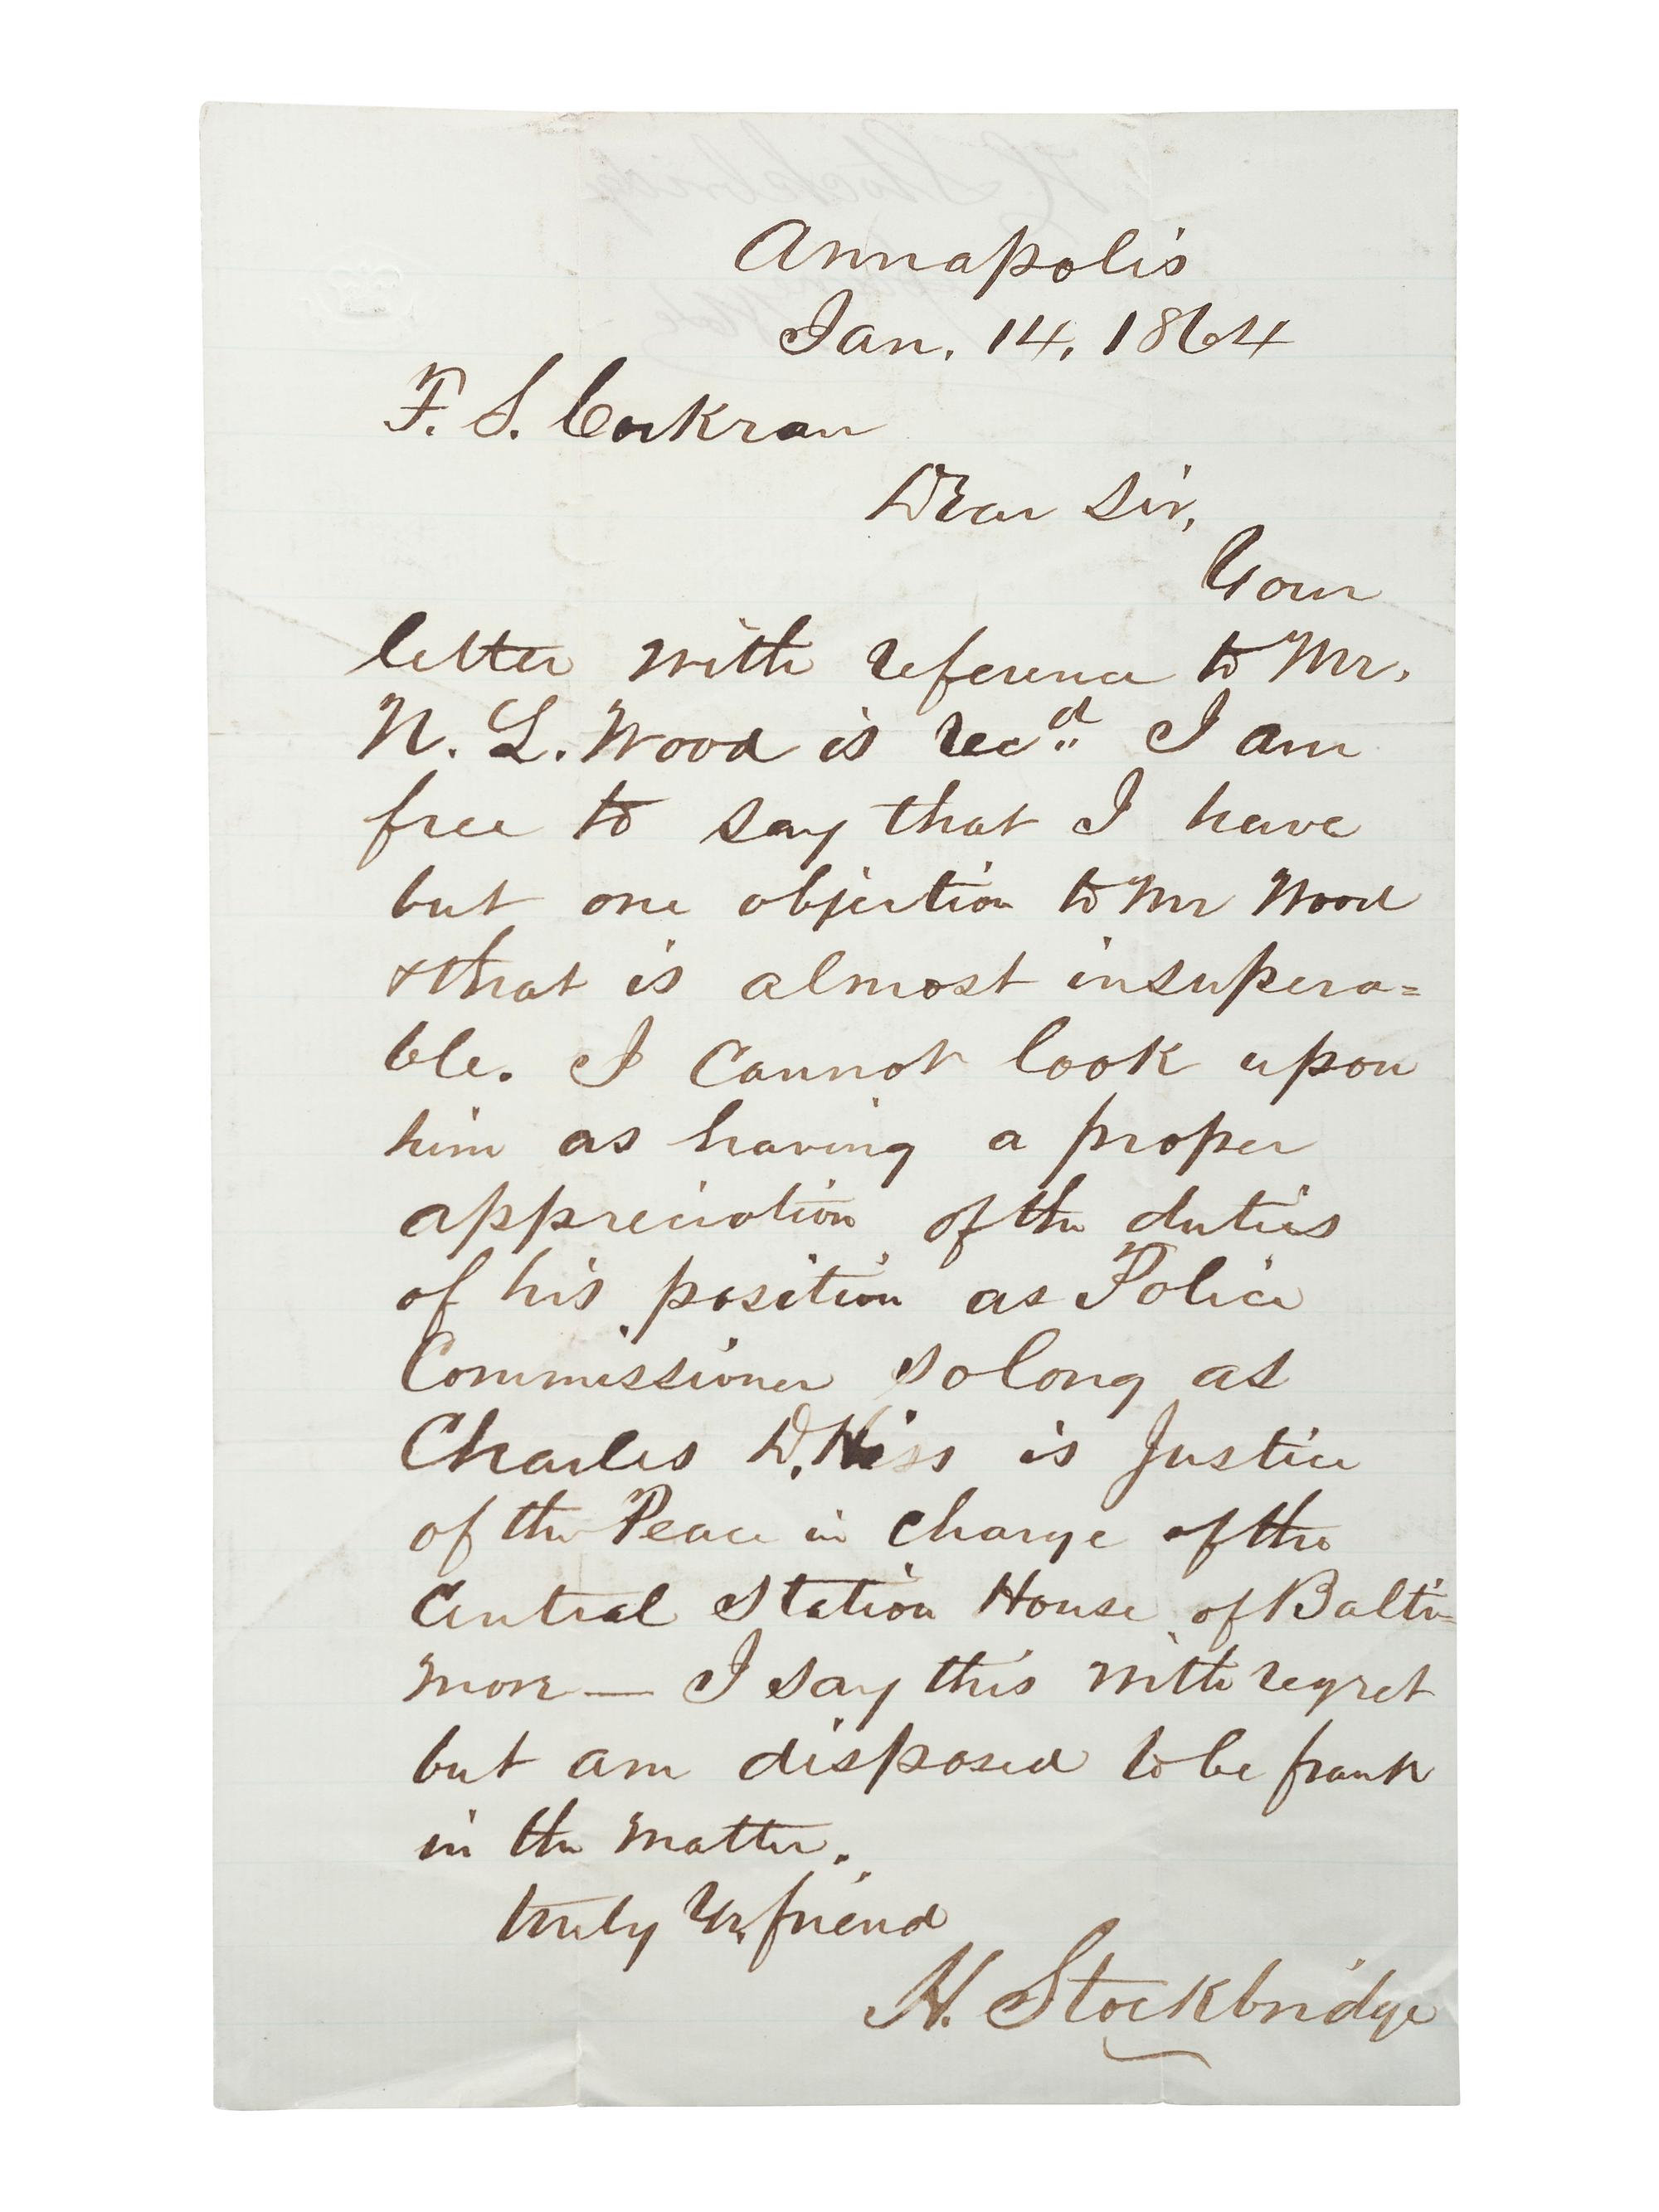 Annapolis
Jan. 14, 1864
F. S. Corkran
Dear Sir,
Your
letter with reference to Mr.
N. L. Wood is rec.d I am
free to say that I have
but one objection to Mr Wood
& that is almost insupera=
ble. I cannot look upon
him as having a proper
appreciation of the duties
of his position as Police
Commissioner so long as
Charles D. Hiss is Justice
of the Peace in charge of the
Central Station House of Balti=
more — I say this with regret
but am disposed to be frank
in the matter.
truly Yr. friend
H. Stockbridge